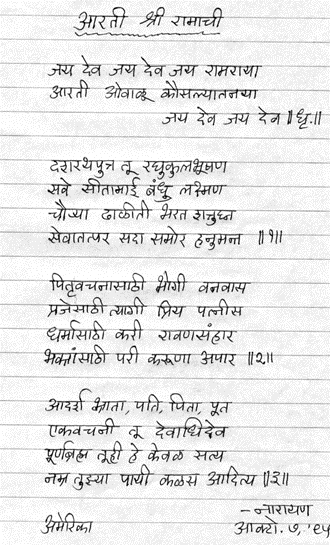 आरती श्री रामाची
जय देव जय देव जय रामराया
आरती ओवाळू कौसल्यातनया
जय देव जय देव ॥धृ.॥
दशरथपुत्र तू रघुकुलभूषण
सवे सीतामाई बंधु लक्ष्मण
चौऱ्या ढाळीती भरत शत्रुघ्न
सेवातत्पर सदा समोर हनुमन ॥१॥
पितृवचनासाठी भोगी वनवास
प्रजेसाठी त्यागी प्रिय पत्नीस
धर्मासाठी करी रावणसंहार
भक्तांसाठी परी करूणा अपार ॥२॥
आदर्श भ्राता, पति, पिता, पूत
एकवचनी तू देवाधिदेव
पूर्णब्रह्म तूही हे केवळ सत्य
नम्र तुझ्या पायी कळस आदित्य ॥३॥
– नारायण
अमेरिका
आक्टो. ७, '९५